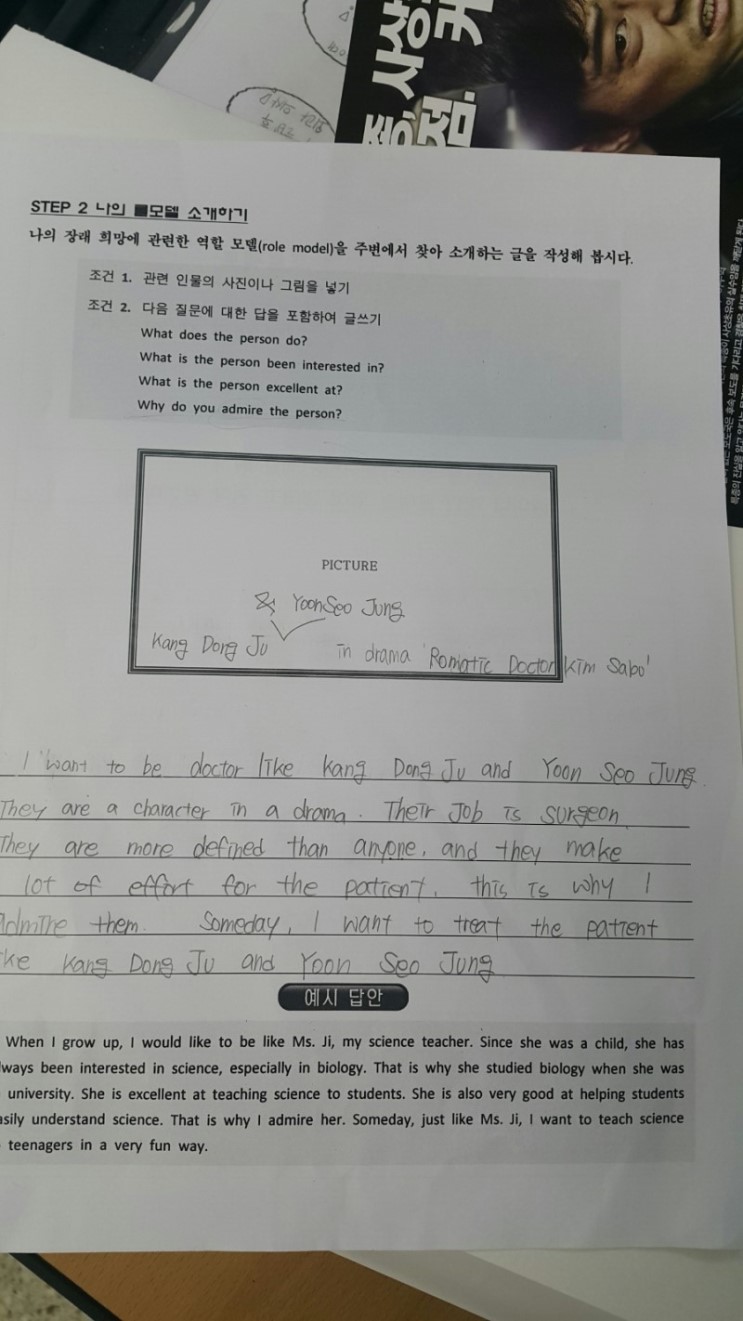 사상
커
종
점.
STEP 2 나의 롤모델 소개하기
나의 장래 희망에 관련한 역할 모델(role model)을 주변에서 찾아 소개하는 글을 작성해 봅시다.
조건 1. 관련 인물의 사진이나 그림을 넣기
조건 2. 다음 질문에 대한 답을 포함하여 글쓰기
What does the person do?
What is the person been interested in?
What is the person excellent at?
Why do you admire the person?
PICTURE
& YoonSeo Jung
Kang Dong Ju in drama 'Romatic Doctor kim Sabu'
I want to be doctor like Kang Dong Ju and Yoon Seo Jung
They are a character in a drama. Their Job is surgeon
They are more defined than anyone, and they make
lot of effort for the patient. this is why I
Admire them. Someday, I want to treat the patient
ke Kang Dong Ju and Yoon Seo Jung
예시 답안
When I grow up, I would like to be like Ms. Ji, my science teacher. Since she was a child, she has
lways been interested in science, especially in biology. That is why she studied biology when she was
university. She is excellent at teaching science to students. She is also very good at helping students
asily understand science. That is why I admire her. Someday, just like Ms. Ji, I want to teach science
teenagers in a very fun way.